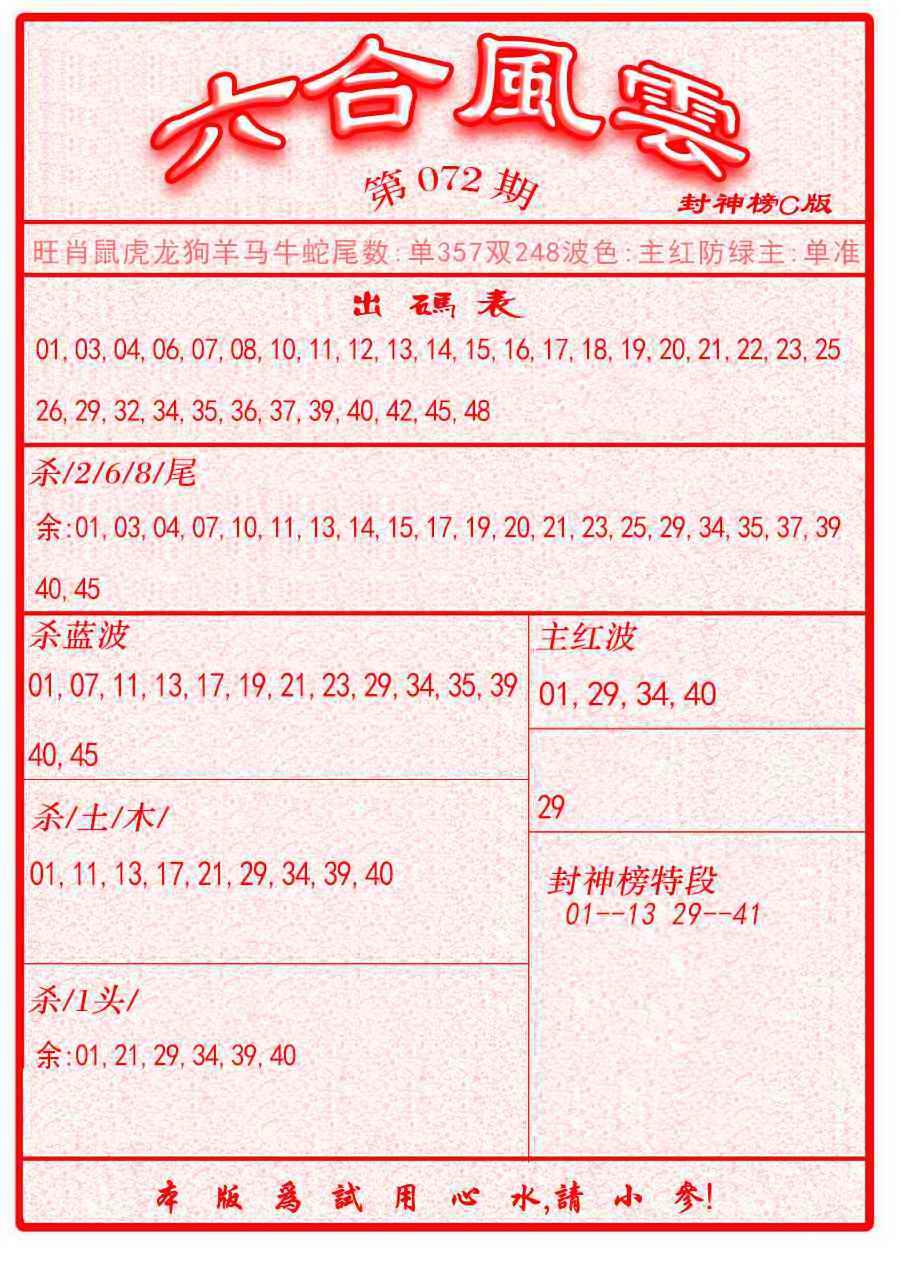 六合風雲
第072期
封神榜C版
旺肖鼠虎龙狗羊马牛蛇尾数:单357双248波色:主红防绿主:单准
出碼表
01,03,04,06,07,08,10,11,12,13,14,15,16,17,18,19,20,21,22,23,25
26,29,32,34,35,36,37,39,40,42,45,48
杀/2/6/8/尾
余:01,03,04,07,10,11,13,14,15,17,19,20,21,23,25,29,34,35,37,39
40,45
杀蓝波
01,07,11,13,17,19,21,23,29,34,35,39
40,45
主红波
01,29,34,40
29
杀/土/木/
01,11,13,17,21,29,34,39,40
封神榜特段
01--13 29--41
杀/1头/
余:01,21,29,34,39,40
本版爲試用心水,請小參!